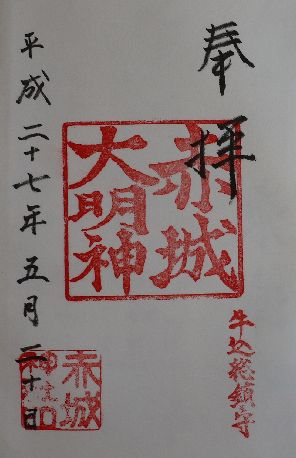 奉拝
赤城
大明神
牛込総鎮守
平成二十七年五月二十日
赤城
神社印